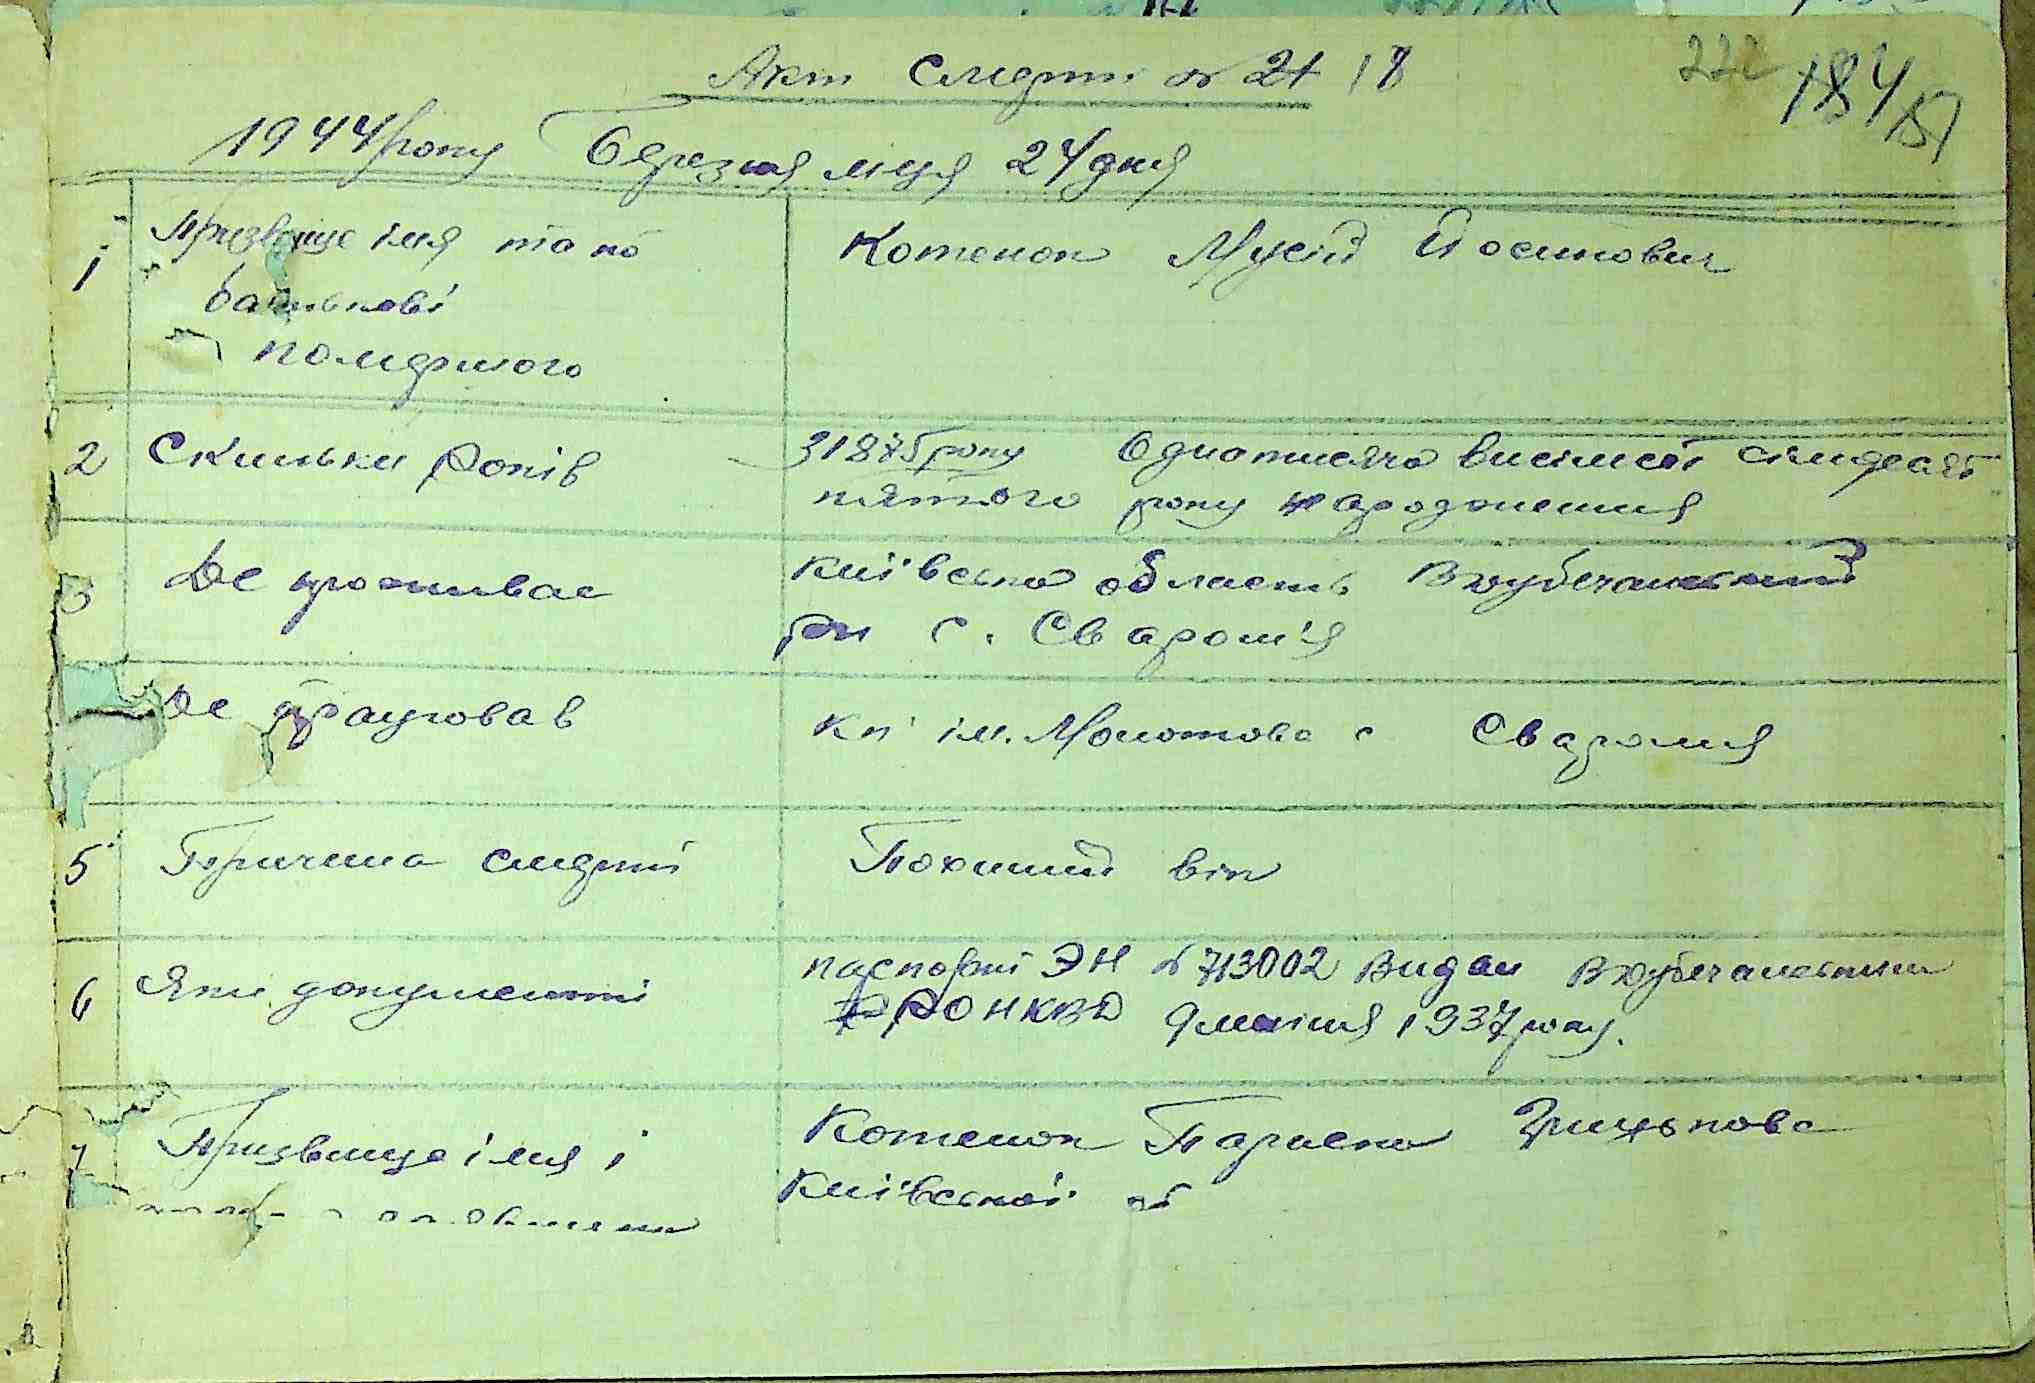 Акт смерті № 21 18
222 184 151
1944 року Березня м-ця 24 дня
1 Призвище імя та по Котенок Мусій Йосипович
батькові
помершого
2 Скільки років З 1875 року Однатисяча висімсот сімдесят
пятого року народження
3 Де проживає Київська область В Дубечанський
р-н с. Сваром'я
Де працював кп ім. Молотова с Сваромя
5 Причина смерті Похилий вік
6 Які документи паспорт ЭН № 713002 Видан В Дубечанським
РОНКВД 9 липня 1937 року.
7 Призвище імя і Котенок Параска Грицькова
Київської об